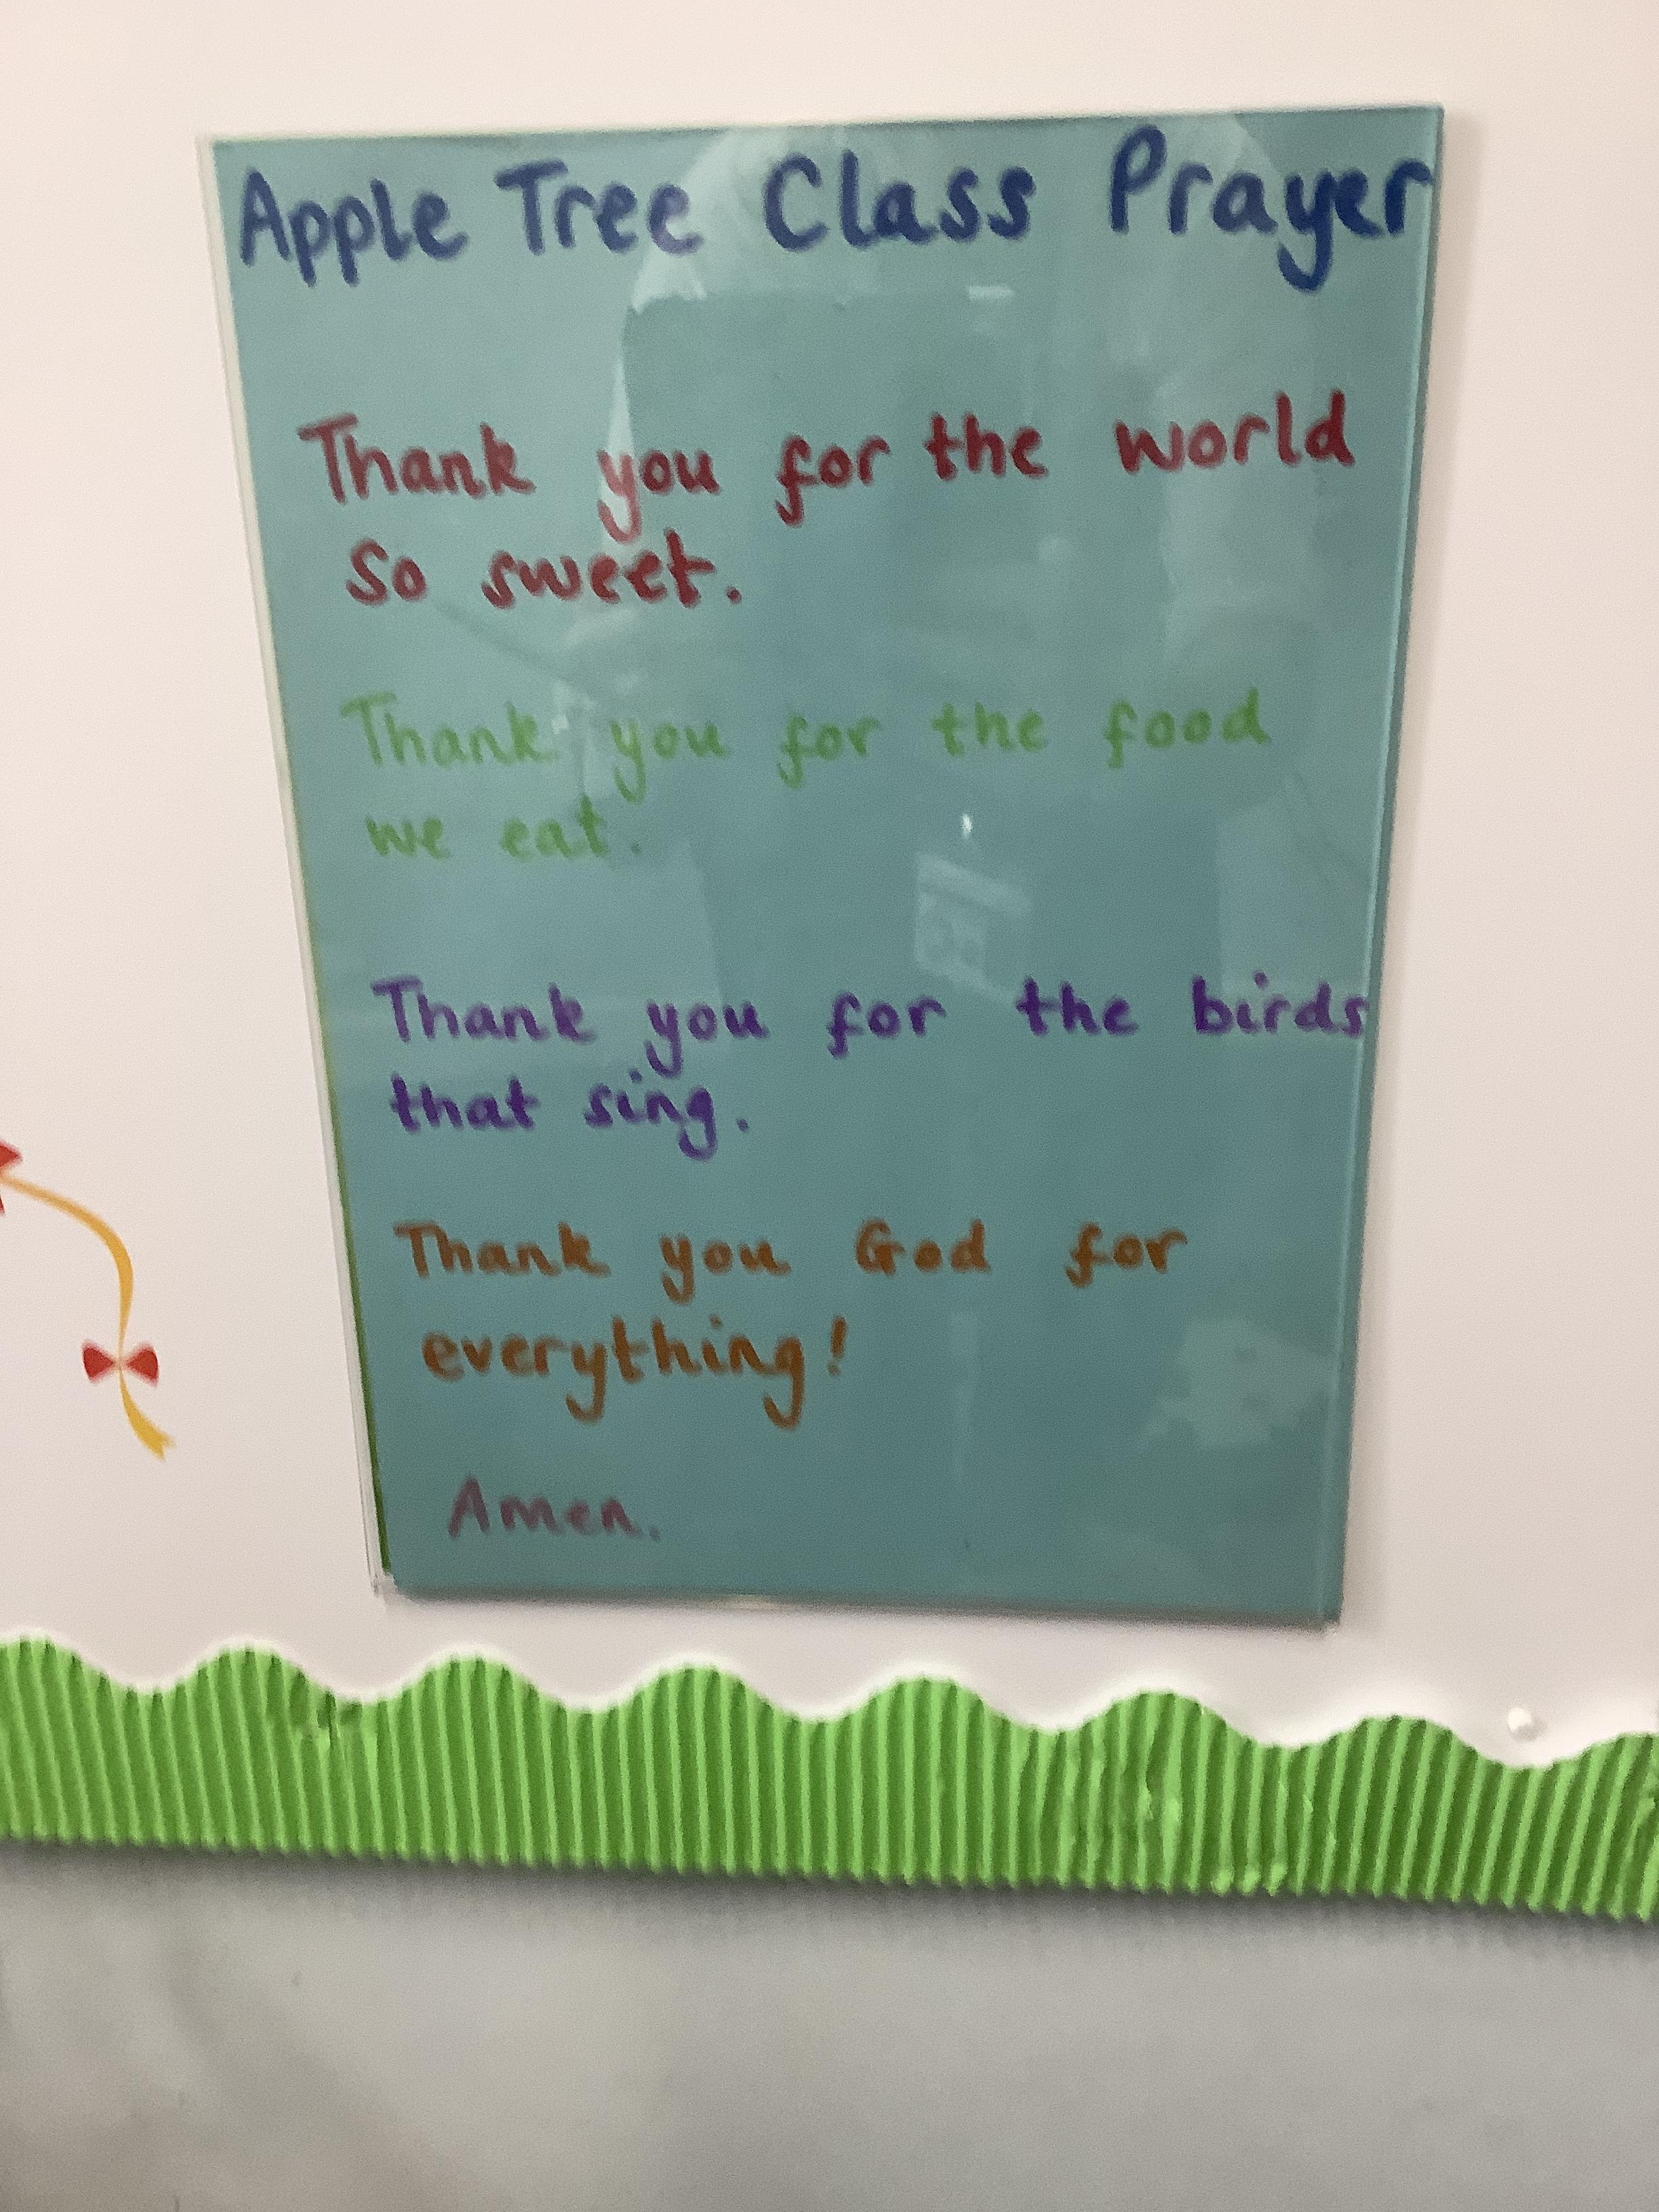 Apple Tree Class Prayer
Thank you for the world
So sweet.
Thank you for the food
we eat.
Thank you for the birds
that sing.
Thank you God for
everything!
Amen.